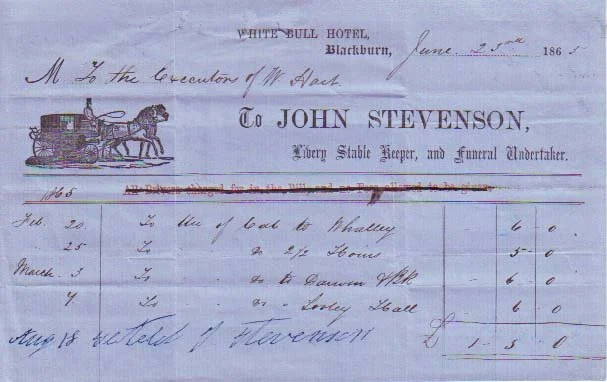 WHITE BULL HOTEL,
Blackburn, June 23rd 1865
M To the Executors of W. Hart
To JOHN STEVENSON,
Livery Stable Keeper, and Funeral Undertaker.
All Drivers charged for in the Bill, and no Fees allowed to be given
1865
Feb. 20 To Use of Cab to Whalley - 6 - 0
- 25 To Do 2 1/2 Hours - 5 - 0
March - 3 To Do to Darwen & Bk - 6 - 0
7 To Do - Hall 6 0
£ 1 - 3 0
Aug 18 Settled J Stevenson